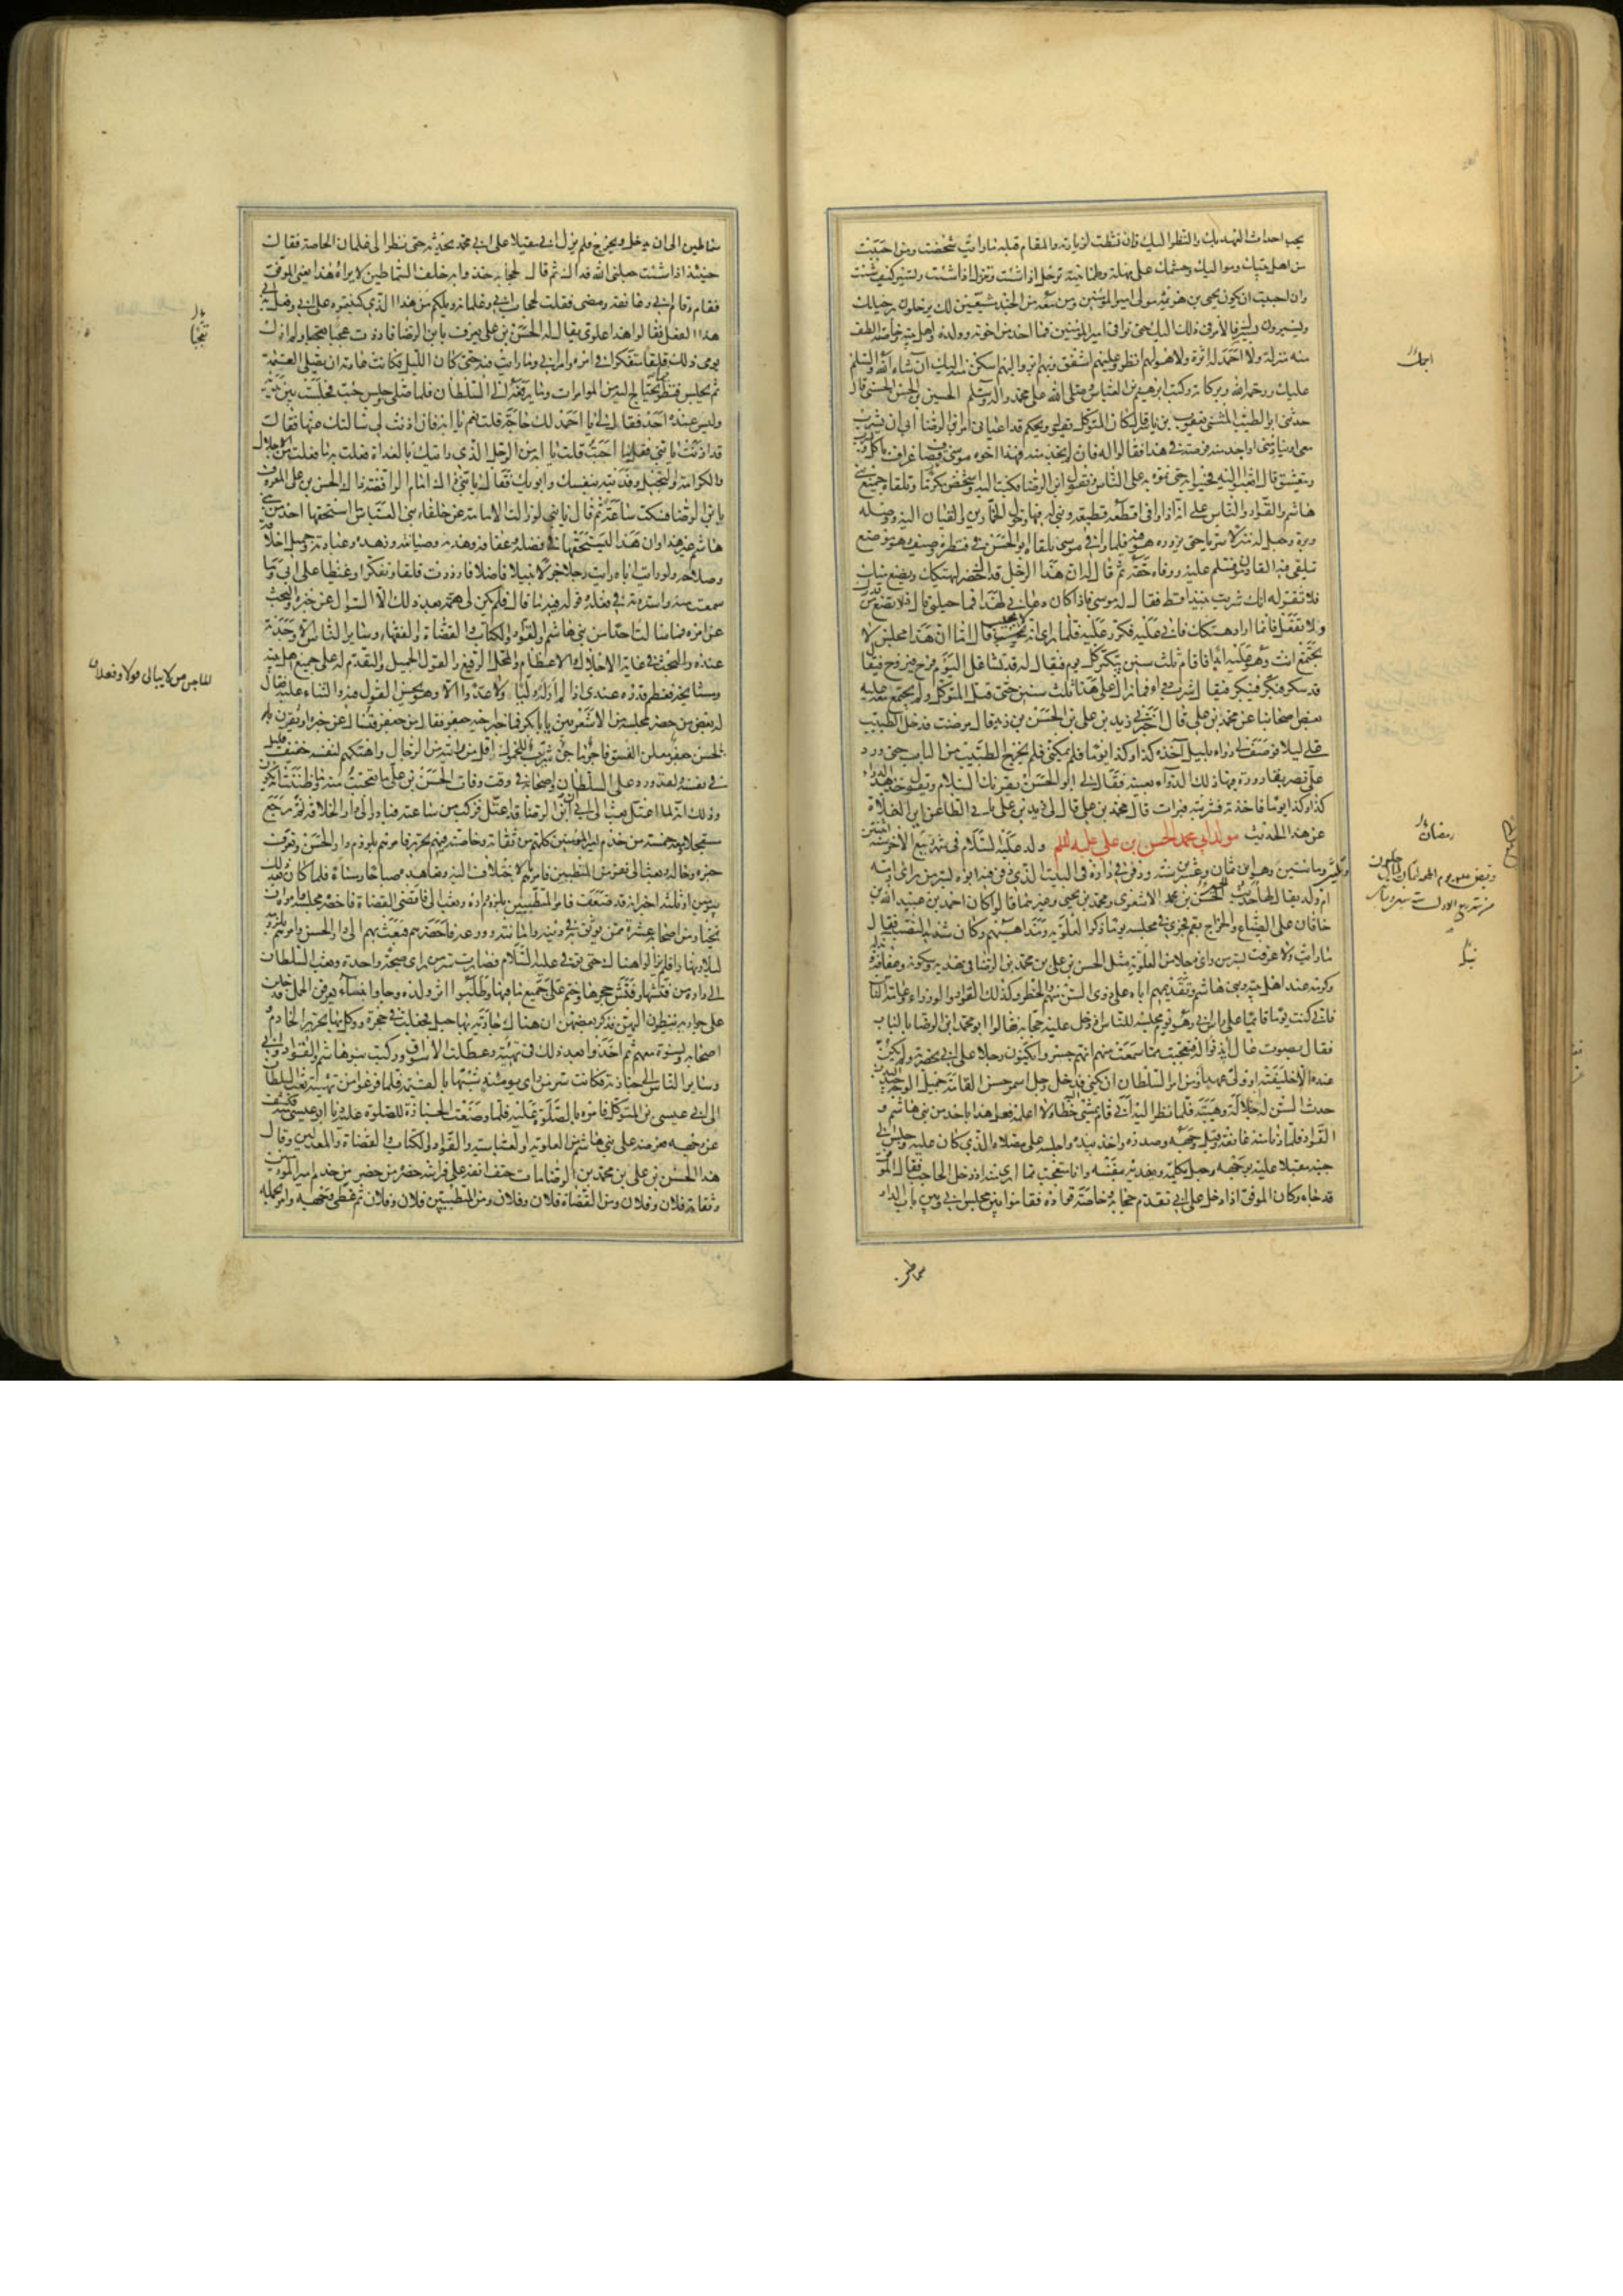 يحب احداث العهد بك والنظر اليك فان نشطت لزيارته والمقام قبله ما رايت شخصت ومن احببت
من اهل بيتك ومواليك وحشمك على مهلة وطمانينة ترحل اذا شئت وتنزل اذا شئت وتسير كيف شئت
وان احببت ان يكون يحيى بن هرثمة مولى امير المؤمنين ومن معه من الجند مشيعين لك يرحلون برحيلك
ويسيرون بسيرك فالامر في ذلك اليك حتى توافى امير المؤمنين فما احد من اخوته وولده واهل بيته وخاصته الطف
منه منزلة ولا احمد له اثرة ولا هو لهم انظر وعليهم اشفق وبهم ابر واليهم اسكن منه اليك ان شاء الله والسلم
عليك ورحمة الله وبركاته وكتب ابرهيم بن العباس وصلى الله على محمد واله وسلم الحسين بن الحسن الحسنى قال
حدثنى ابو الطيب المثنى يعقوب بن ياسر قال كان المتوكل يقول ويحكم قد اعيانى امر ابن الرضا ابى ان يشرب
معى او ينادمنى او اجد منه فرصة فى هذا فقالوا له فان لم تجد منه فهذا اخوه موسى قصاف عزاف ياكل ويشرب
ويتعشق قال ابعثوا اليه فجيئوا به حتى نموه به على الناس ونقول ابن الرضا فكتب اليه واشخص مكرما وتلقاه جميع بنى
هاشم والقواد والناس على انه اذا وافى اقطعه قطيعة وبنى له فيها وحول الخمارين والقيان اليه ووصله
وبره وجعل له منزلا سريا حتى يزوره هو فيه فلما وافى موسى تلقاه ابو الحسن فى قنطرة وصيف وهو موضع
تتلقى فيه القادمون فسلم عليه ووفاه حقه ثم قال له ان هذا الرجل قد احضرك ليهتكك ويضع منك
فلا تقر له انك شربت نبيذا قط فقال له موسى فاذا كان دعانى لهذا فما حيلتى قال فلا تضع من قدرك
ولا تفعل فانما اراد هتكك فابى عليه فكرر عليه فلما راى انه لا يجيب قال اما ان هذا مجلس لا
تجتمع انت وهو عليه ابدا فاقام ثلث سنين يبكر كل يوم فيقال له قد تشاغل اليوم فرح فيروح فيقال
قد سكر فبكر فيبكر فيقال شرب دواء فما زال على هذا ثلث سنين حتى قتل المتوكل ولم يجتمع معه عليه
بعض اصحابنا عن محمد بن على قال اخبرنى زيد بن على بن الحسن بن زيد قال مرضت فدخل الطبيب
على ليلا فوصف لى دواء بليل آخذه كذا وكذا يوما فلم يمكنى فلم يخرج الطبيب من الباب حتى ورد
على نصر بقارورة فيها ذلك الدواء بعينه فقال لى ابو الحسن يقرئك السلام ويقول خذ هذا الدواء
كذا وكذا يوما فاخذته فشربته فبرات قال محمد بن على قال لى زيد بن على يابى الطاعن اين الغلاة
عن هذا الحديث مولد ابى محمد الحسن بن على عليه السلم ولد عليه السلام فى شهر ربيع الاخر سنة اثنتين
وثلثين وماتين وهو ابن ثمان وعشرين سنة ودفن فى داره فى البيت الذى دفن فيه ابوه بسر من راى وامه
ام ولد يقال لها حديث الحسين بن محمد الاشعرى ومحمد بن يحيى وغيرهما قالوا كان احمد بن عبيد الله بن
خاقان على الضياع والخراج بقم فجرى فى مجلسه يوما ذكر العلوية ومذاهبهم وكان شديد النصب فقال
ما رايت ولا عرفت بسر من راى رجلا من العلوية مثل الحسن بن على بن محمد بن الرضا فى هديه وسكونه وعفافه ونبله
وكرمه عند اهل بيته وبنى هاشم وتقديمهم اياه على ذوى السن منهم والخطر وكذلك القواد والوزراء وعامة الناس
فانى كنت يوما قائما على راس ابى وهو يوم مجلسه للناس اذ دخل عليه حجابه فقالوا ابو محمد ابن الرضا بالباب
فقال بصوت عال ائذنوا له فتعجبت مما سمعت منهم انهم جسروا يكنون رجلا على ابى بحضرته ولم يكن
عنده الا خليفة او ولى عهد او من امر السلطان ان يكنى فدخل رجل اسمر حسن القامة جميل الوجه جيد البدن
حدث السن له جلالة وهيبة فلما نظر اليه ابى قام يمشى اليه خطا ولا اعلمه فعل هذا باحد من بنى هاشم و
القواد فلما دنا منه عانقه وقبل وجهه وصدره واخذ بيده واجلسه على مصلاه الذى كان عليه وجلس الى
جنبه مقبلا عليه بوجهه وجعل يكلمه ويفديه بنفسه وانا متعجب مما ارى منه اذ دخل الحاجب فقال الموفق
قد جاء وكان الموفق اذا دخل على ابى تقدم حجابه وخاصة قواده فقاموا بين مجلس ابى وبين باب الدار
سماطين
رمضان
سماطين الى ان يدخل ويخرج فلم يزل ابى مقبلا على ابى محمد يحدثه حتى نظر الى غلمان الخاصة فقال
حينئذ اذا شئت جعلنى الله فداك ثم قال لحجابه خذوا به خلف السماطين لا يراه هذا يعنى الموفق
فقام وقام ابى وعانقه ومضى فقلت لحجاب ابى وغلمانه ويلكم من هذا الذى كنيتموه على ابى وفعل به ابى
هذا الفعل فقالوا هذا علوى يقال له الحسن بن على يعرف بابن الرضا فازددت تعجبا ولم ازل
يومى ذلك قلقا متفكرا فى امره وامر ابى وما رايت منه حتى كان الليل وكانت عادته ان يصلى العتمة
ثم يجلس فينظر فيما يحتاج اليه من المؤامرات وما يرفعه الى السلطان فلما صلى وجلس جئت فجلست بين يديه
وليس عنده احد فقال لى يا احمد لك حاجة قلت نعم يا ابه فان اذنت لى سالتك عنها فقال
قد اذنت يا بنى فقل ما احببت قلت يا ابه من الرجل الذى رايتك بالغداة فعلت به ما فعلت من الاجلال
والكرامة والتبجيل وفديته بنفسك وابويك فقال يا بنى ذاك امام الرافضة ذاك الحسن بن على المعروف
بابن الرضا فسكت ساعة ثم قال يا بنى لو زالت الامامة عن خلفاء بنى العباس ما استحقها احد من بنى
هاشم غير هذا وان هذا ليستحقها فى فضله وعفافه وهديه وصيانته وزهده وعبادته وجميل اخلاقه
وصلاحه ولو رايت اباه رايت رجلا جزلا نبيلا فاضلا فازددت قلقا وتفكرا وغيظا على ابى وما
سمعت منه واستزدته فى فعله وقوله فيه ما قال فلم يكن لى همة بعد ذلك الا السؤال عن خبره والبحث
عن امره فما سالت احدا من بنى هاشم والقواد والكتاب والقضاة والفقهاء وسائر الناس الا وجدته
عنده فى غاية الاجلال والاعظام والمحل الرفيع والقول الجميل والتقديم له على جميع اهل بيته
ومشايخه فعظم قدره عندى اذ لم ار له وليا ولا عدوا الا وهو يحسن القول فيه والثناء عليه فقال
له بعض من حضر مجلسه من الاشعريين يا بابكر فما خبر اخيه جعفر فقال ومن جعفر فتسال عن خبره او يقرن
بالحسن جعفر معلن الفسق فاجر ماجن شريب للخمور اقل من رايته من الرجال واهتكهم لنفسه خفيف قليل
فى نفسه ولقد ورد على السلطان واصحابه فى وقت وفات الحسن بن على ما تعجبت منه وما ظننت انه يكون
وذلك انه لما اعتل بعث الى ابى ان ابن الرضا قد اعتل فركب من ساعته فبادر الى دار الخلافة ثم رجع
مستعجلا ومعه خمسة من خدم امير المؤمنين كلهم من ثقاته وخاصته فيهم نحرير فامرهم بلزوم دار الحسن وتعرف
خبره وحاله وبعث الى نفر من المتطببين فامرهم بالاختلاف اليه وتعاهده صباحا ومساء فلما كان بعد ذلك
بيومين او ثلثة اخبر انه قد ضعف فامر المتطببين بلزوم داره وبعث الى قاضى القضاة فاحضره مجلسه وامره ان
يختار من اصحابه عشرة ممن يوثق به فى دينه وامانته وورعه فاحضرهم فبعث بهم الى دار الحسن وامرهم بلزومه
ليلا ونهارا فلم يزالوا هناك حتى توفى عليه السلام فصارت سر من راى ضجة واحدة وبعث السلطان
الى داره من فتشها وفتش حجرها وختم على جميع ما فيها وطلبوا اثر ولده وجاوا بنساء يعرفن الحمل فدخلن
على جواريه ينظرن اليهن فذكر بعضهن ان هناك جارية بها حبل فجعلت فى حجرة ووكل بها نحرير الخادم و
اصحابه ونسوة معهم ثم اخذوا بعد ذلك فى تهيئته وعطلت الاسواق وركبت بنو هاشم والقواد وابى
وسائر الناس الى جنازته فكانت سر من راى يومئذ شبيها بالقيمة فلما فرغوا من تهيئته بعث السلطان
الى ابى عيسى بن المتوكل فامره بالصلوة عليه فلما وضعت الجنازة للصلوة عليه دنا ابو عيسى منه فكشف
عن وجهه فعرضه على بنى هاشم من العلوية والعباسية والقواد والكتاب والقضاة والمعدلين وقال
هذا الحسن بن على بن محمد بن الرضا مات حتف انفه على فراشه حضره من حضره من خدم امير المؤمنين
وثقاته فلان وفلان ومن القضاة فلان وفلان ومن المتطببين فلان وفلان ثم غطى وجهه وامر بحمله
الماجن من لا يبالى قولا وفعلا